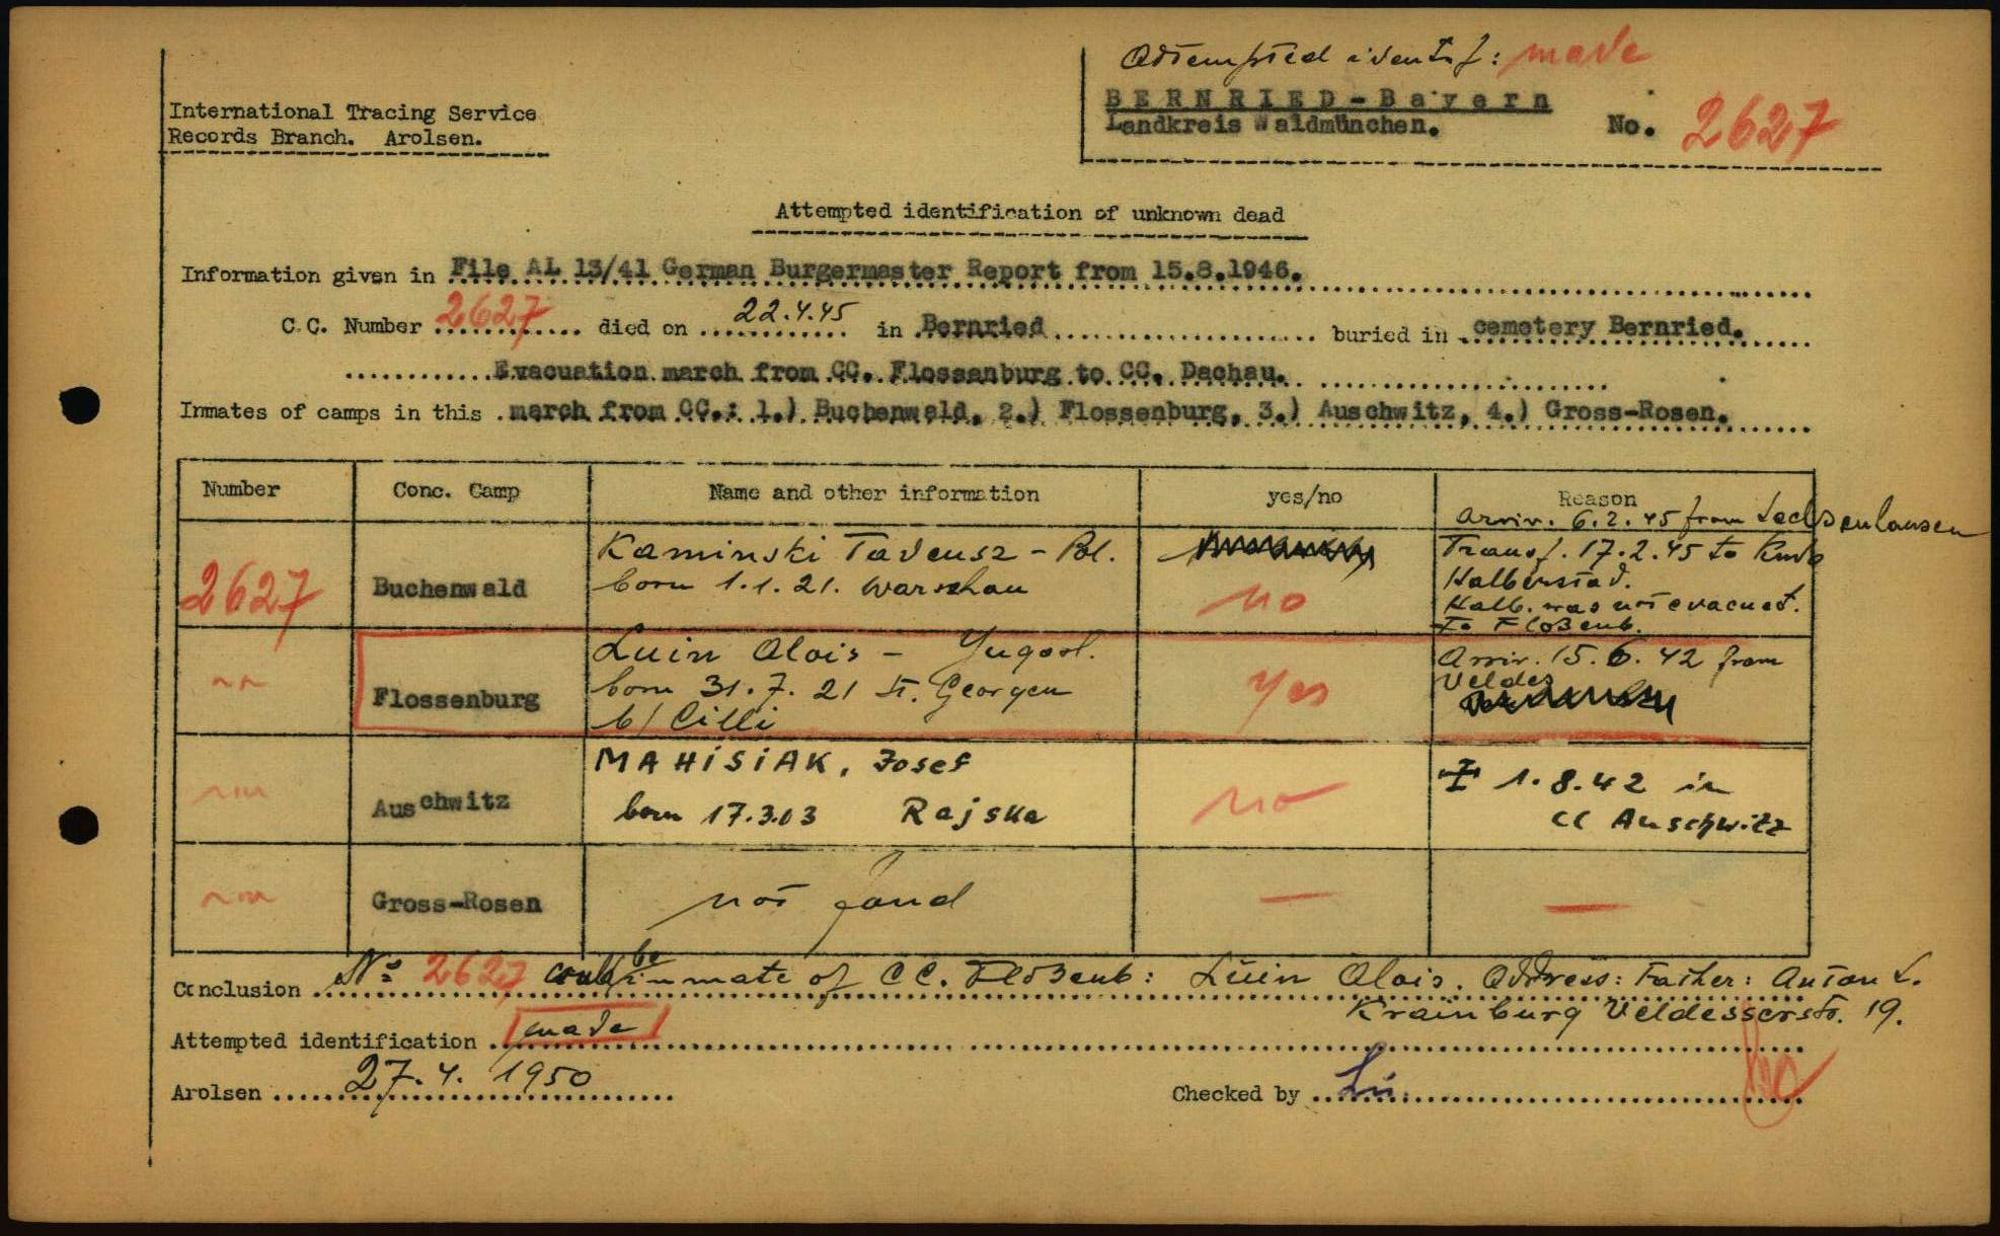 Attempted identif: made
International Tracing Service
Records Branch. Arolsen.
BERNRIED-Bayern
Landkreis Waldmünchen. No. 2627
Attempted identification of unknown dead
Information given in File AL 13/41 German Burgermaster Report from 15.8.1946.
C.C. Number 2627 died on 22.4.45 in Bernried buried in cemetery Bernried.
Evacuation march from CC. Flossenburg to CC. Dachau.
Inmates of camps in this march from CC.: 1.) Buchenwald, 2.) Flossenburg, 3.) Auschwitz, 4.) Gross-Rosen.
Number Conc. Camp Name and other information yes/no Reason
Arriv. 6.2.45 from Sachsenhausen
Kaminski Tadeusz - Pol. Transf. 17.2.45 to Kmdo
2627 Buchenwald born 1.1.21. Warschau no Halberstad.
Halb. was not evacuat.
to Floßenb.
Luin Alois - Yugosl. Arriv. 15.6.42 from
Flossenburg born 31.7.21 St. Georgen yes Veldes
b/ Cilli
MAHISIAK, Josef
Auschwitz born 17.3.03 Rajska no 1.8.42 in
CC Auschwitz
Gross-Rosen not fand — —
Conclusion No 2627 could be inmate of CC. Floßenb: Luin Alois. Address: Father: Anton L.
Krainburg Veldesserstr. 19.
Attempted identification made
Arolsen 27.4. 1950 Checked by Lü